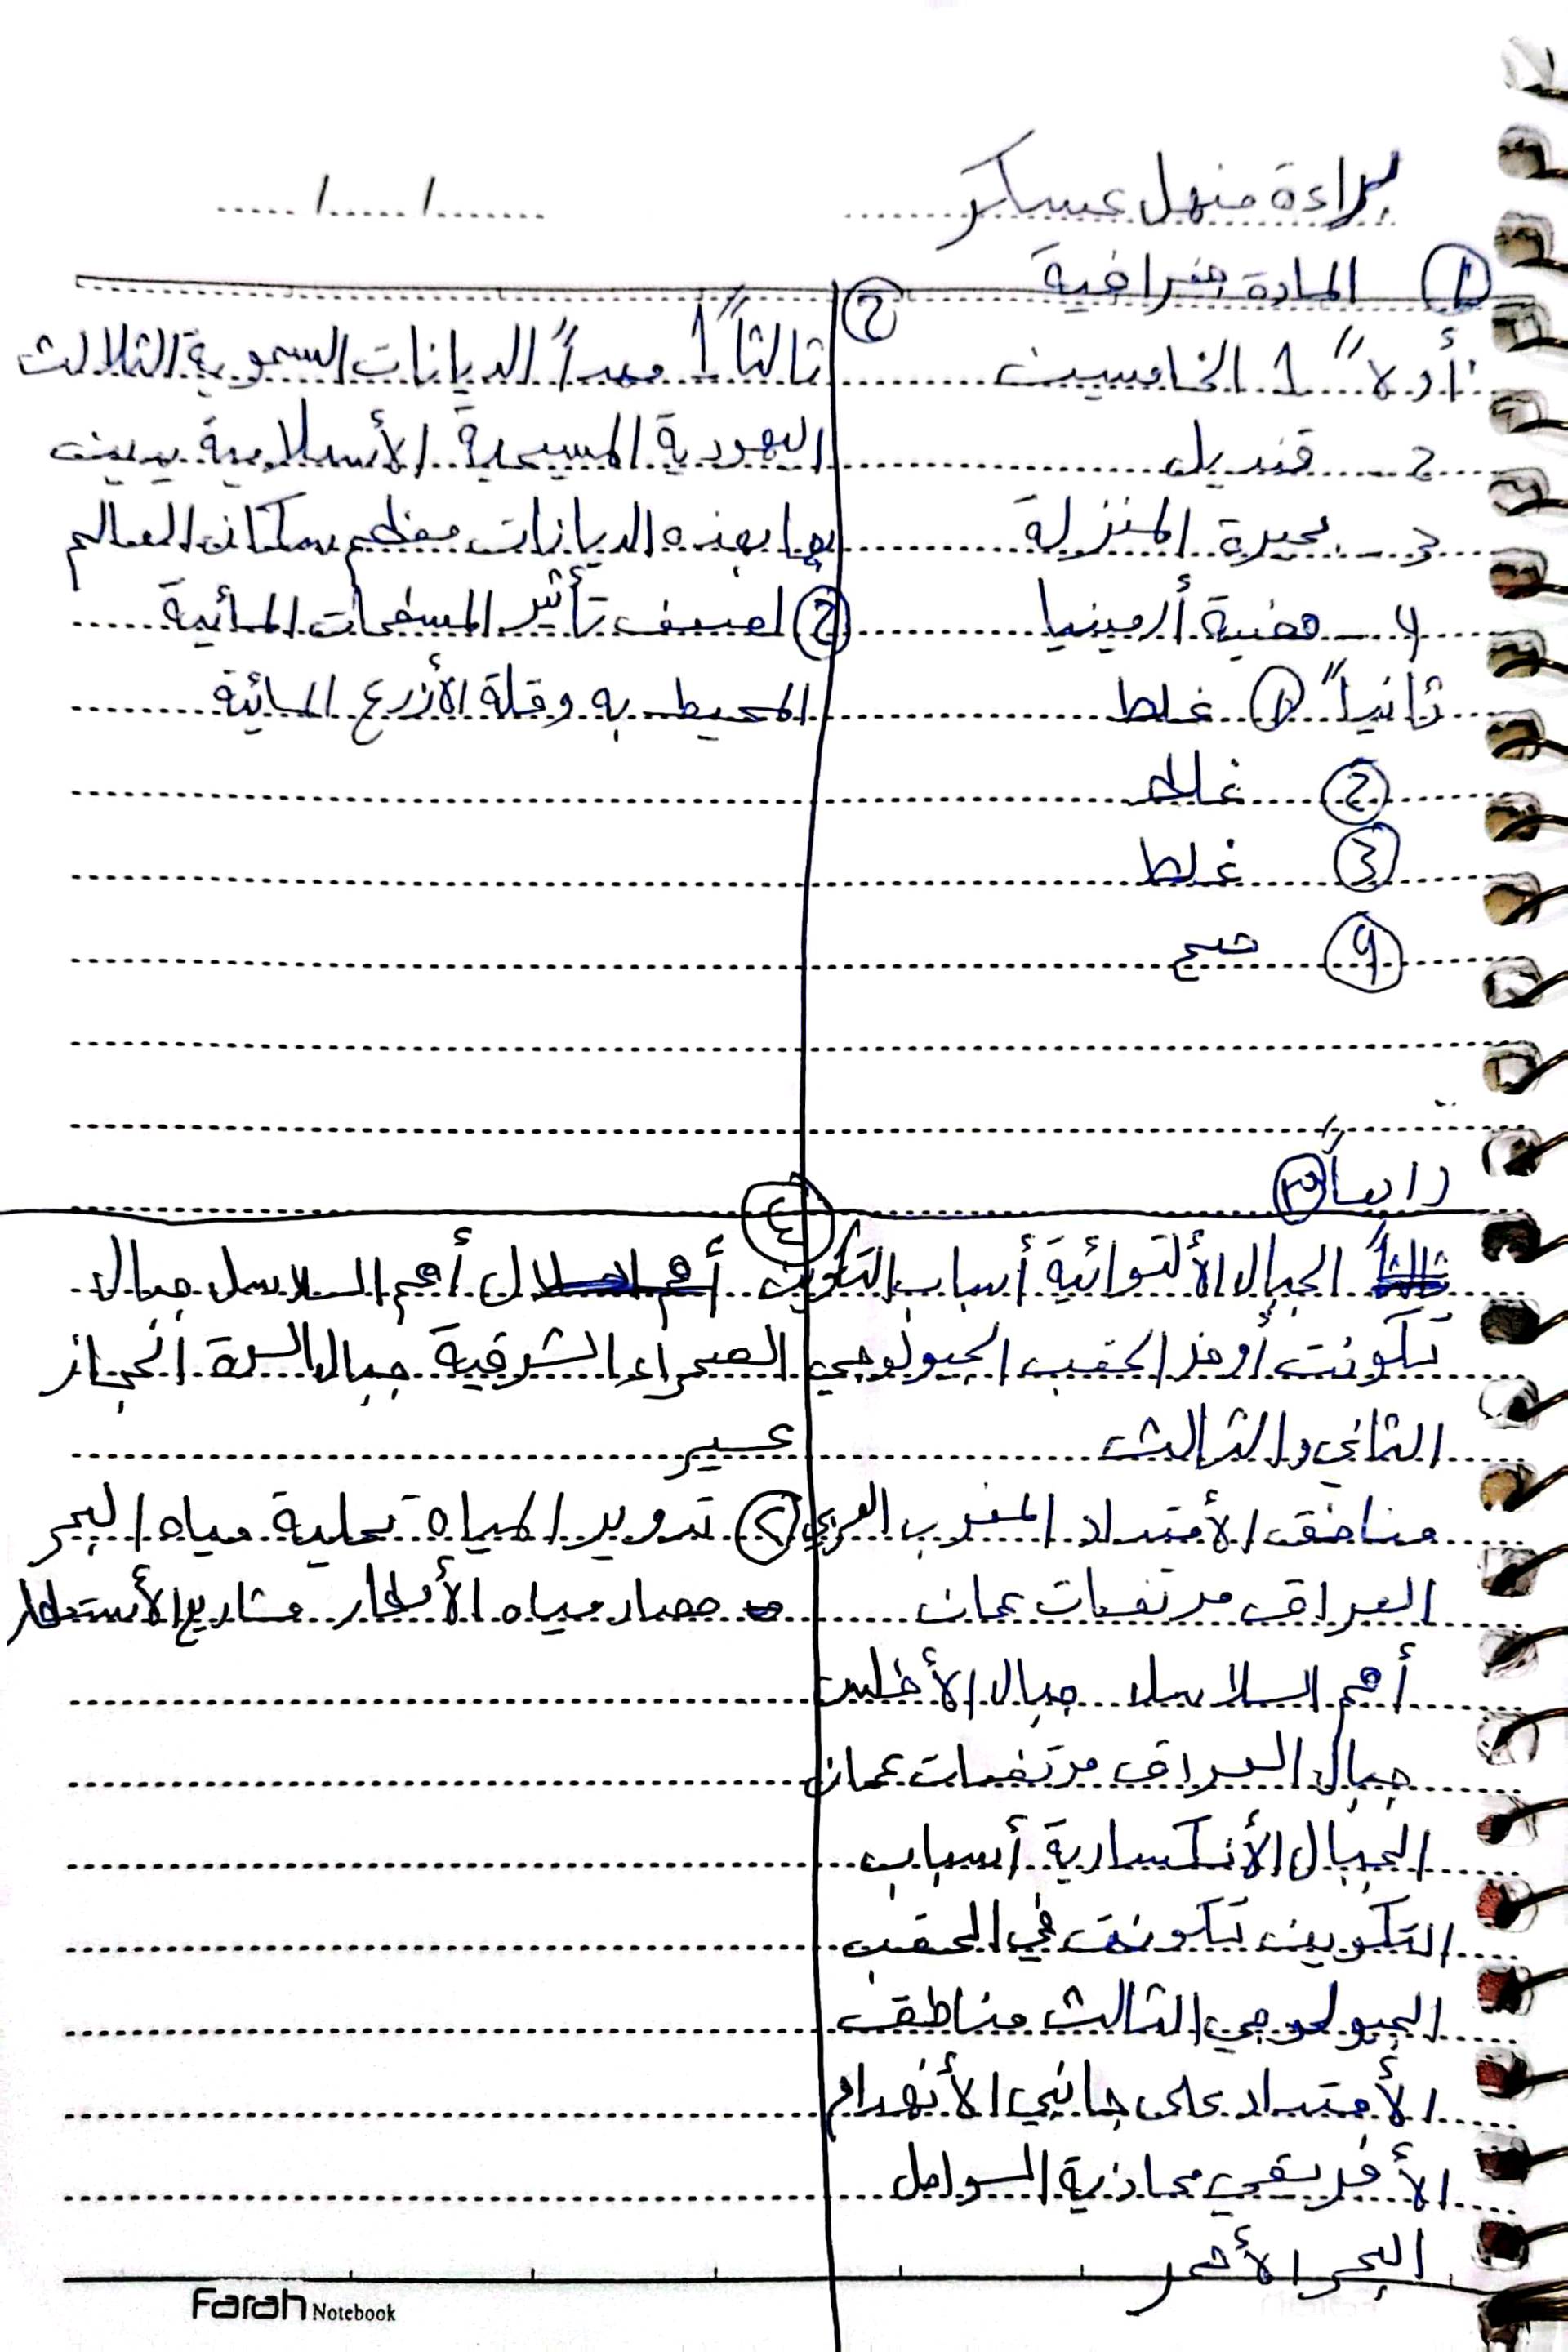 براءة منهل عسكر
..... / ..... / .......
① المادة جغرافية
أولاً 1 الخامسين
2 _ قنديل
3 _ بحيرة المنزلة
4 _ هضبة أرمينيا
ثانياً ① غلط
② غلط
③ غلط
④ صح
②
ثالثاً 1 مهداً الديانات السموية الثلاث
اليهودية المسيحية الأسلامية يدين
بها بهذه الديانات معظم سكان العالم
② لضيف تأثير المسطحات المائية
المحيط به وقلة الأزرع المائية
رابعاً ③
الجبال الألتوائية أسباب التكوين
تكونت أوخر الحقب الجيولوجي
الثاني والثالث
مناطق الأمتداد المغرب العربي
العراق مرتفعات عمان
أهم السلاسل جبال الأطلس
جبال العراق مرتفعات عمان
الجبال الأنكسارية أسباب
التكوين تكونت في الحقب
الجيولوجي الثالث مناطق
الأمتداد على جانبي الأنهدام
الأفريقي محاذية السواحل
البحر الأحمر
④
أهم السلاسل جبال
الصحراء الشرقية جبال السرة الحجاز
عسير
② تدوير المياه تحلية مياه البحر
حصار مياه الأمطار مشاريع الأستمطار
Farah Notebook